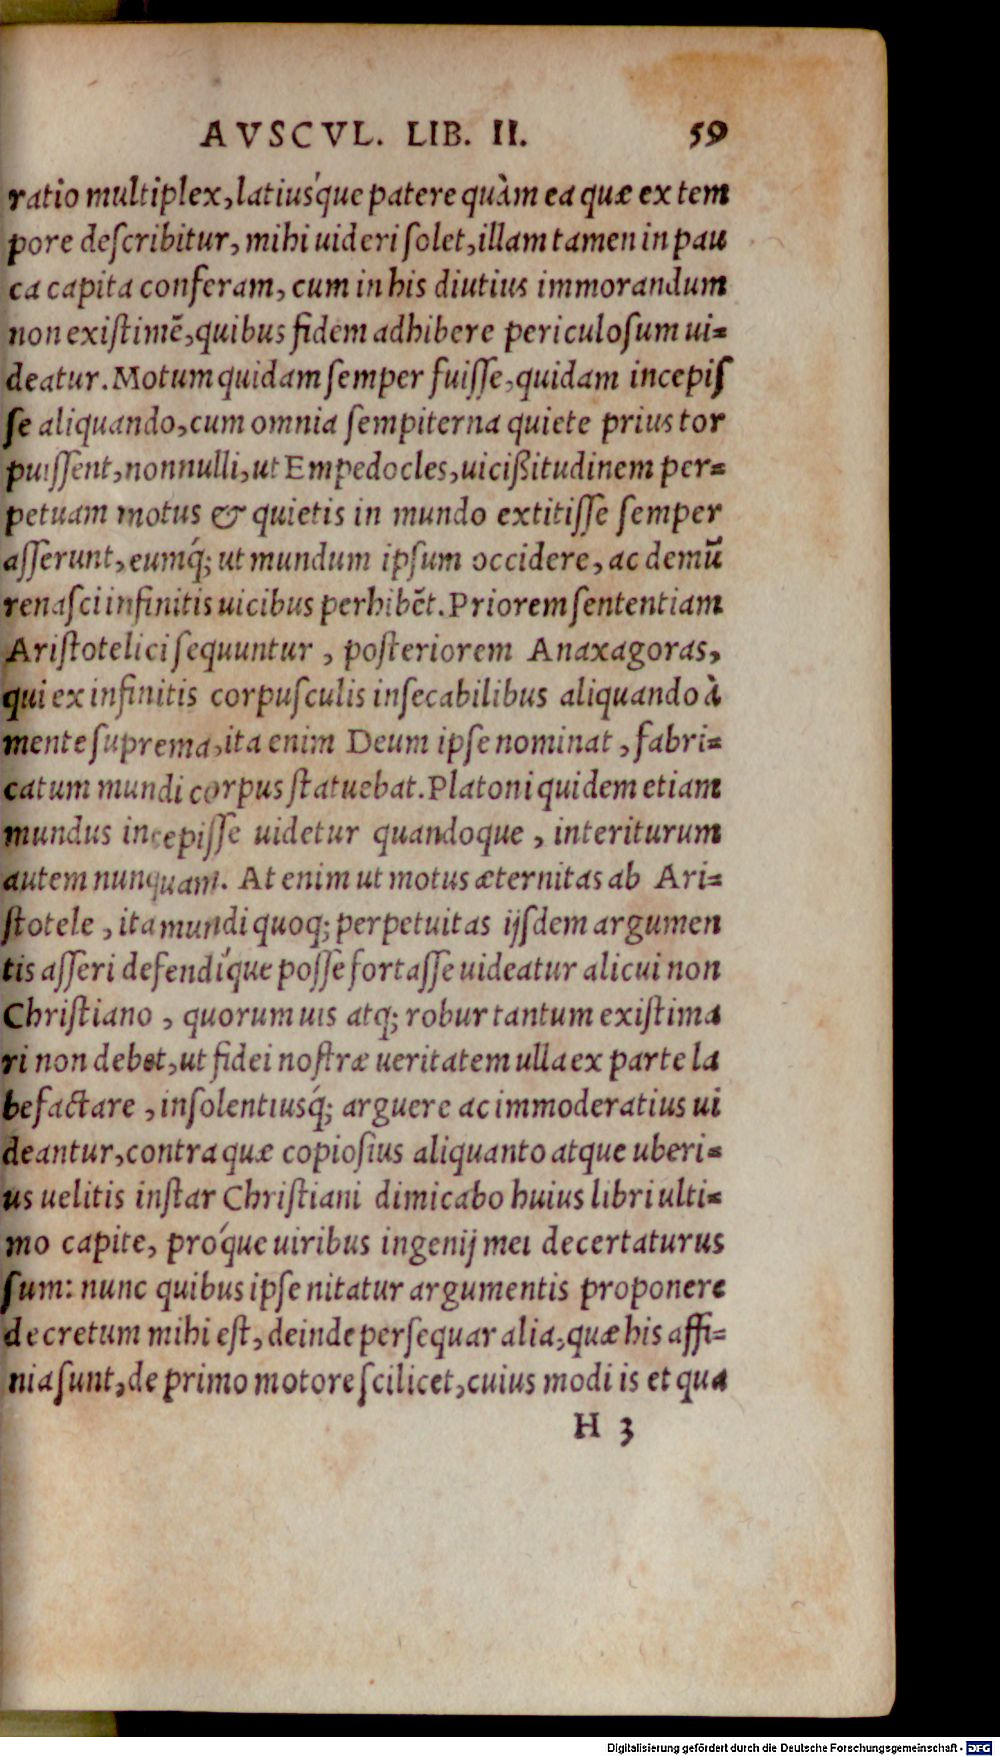 AVSCVL. LIB. II. 59
ratio multiplex, latius'que patere quàm ea quæ ex tem
pore deſcribitur, mihi uideri ſolet, illam tamen in pau
ca capita conferam, cum in his diutius immorandum
non exiſtimē, quibus fidem adhibere periculoſum ui=
deatur. Motum quidam ſemper fuiſſe, quidam incepiſ
ſe aliquando, cum omnia ſempiterna quiete prius tor
puiſſent, nonnulli, ut Empedocles, uicißitudinem per=
petuam motus & quietis in mundo extitiſſe ſemper
aſſerunt, eumq́; ut mundum ipſum occidere, ac demū
renaſci infinitis uicibus perhibēt. Priorem ſententiam
Ariſtotelici ſequuntur, poſteriorem Anaxagoras,
qui ex infinitis corpuſculis inſecabilibus aliquando à
mente ſuprema, ita enim Deum ipſe nominat, fabri=
catum mundi corpus ſtatuebat. Platoni quidem etiam
mundus incepiſſe uidetur quandoque, interiturum
autem nunquam. At enim ut motus æternitas ab Ari=
ſtotele, ita mundi quoq; perpetuitas ijſdem argumen
tis aſſeri defendi'que poſſe fortaſſe uideatur alicui non
Chriſtiano, quorum uis atq; robur tantum exiſtima
ri non debet, ut fidei noſtræ ueritatem ulla ex parte la
befactare, inſolentiusq́; arguere ac immoderatius ui
deantur, contra quæ copioſius aliquanto atque uberi=
us uelitis inſtar Chriſtiani dimicabo huius libri ulti=
mo capite, pro'que uiribus ingenij mei decertaturus
ſum: nunc quibus ipſe nitatur argumentis proponere
decretum mihi eſt, deinde perſequar alia, quæ his affi=
nia ſunt, de primo motore ſcilicet, cuius modi is et qua
H 3
Digitalisierung gefördert durch die Deutsche Forschungsgemeinschaft - DFG